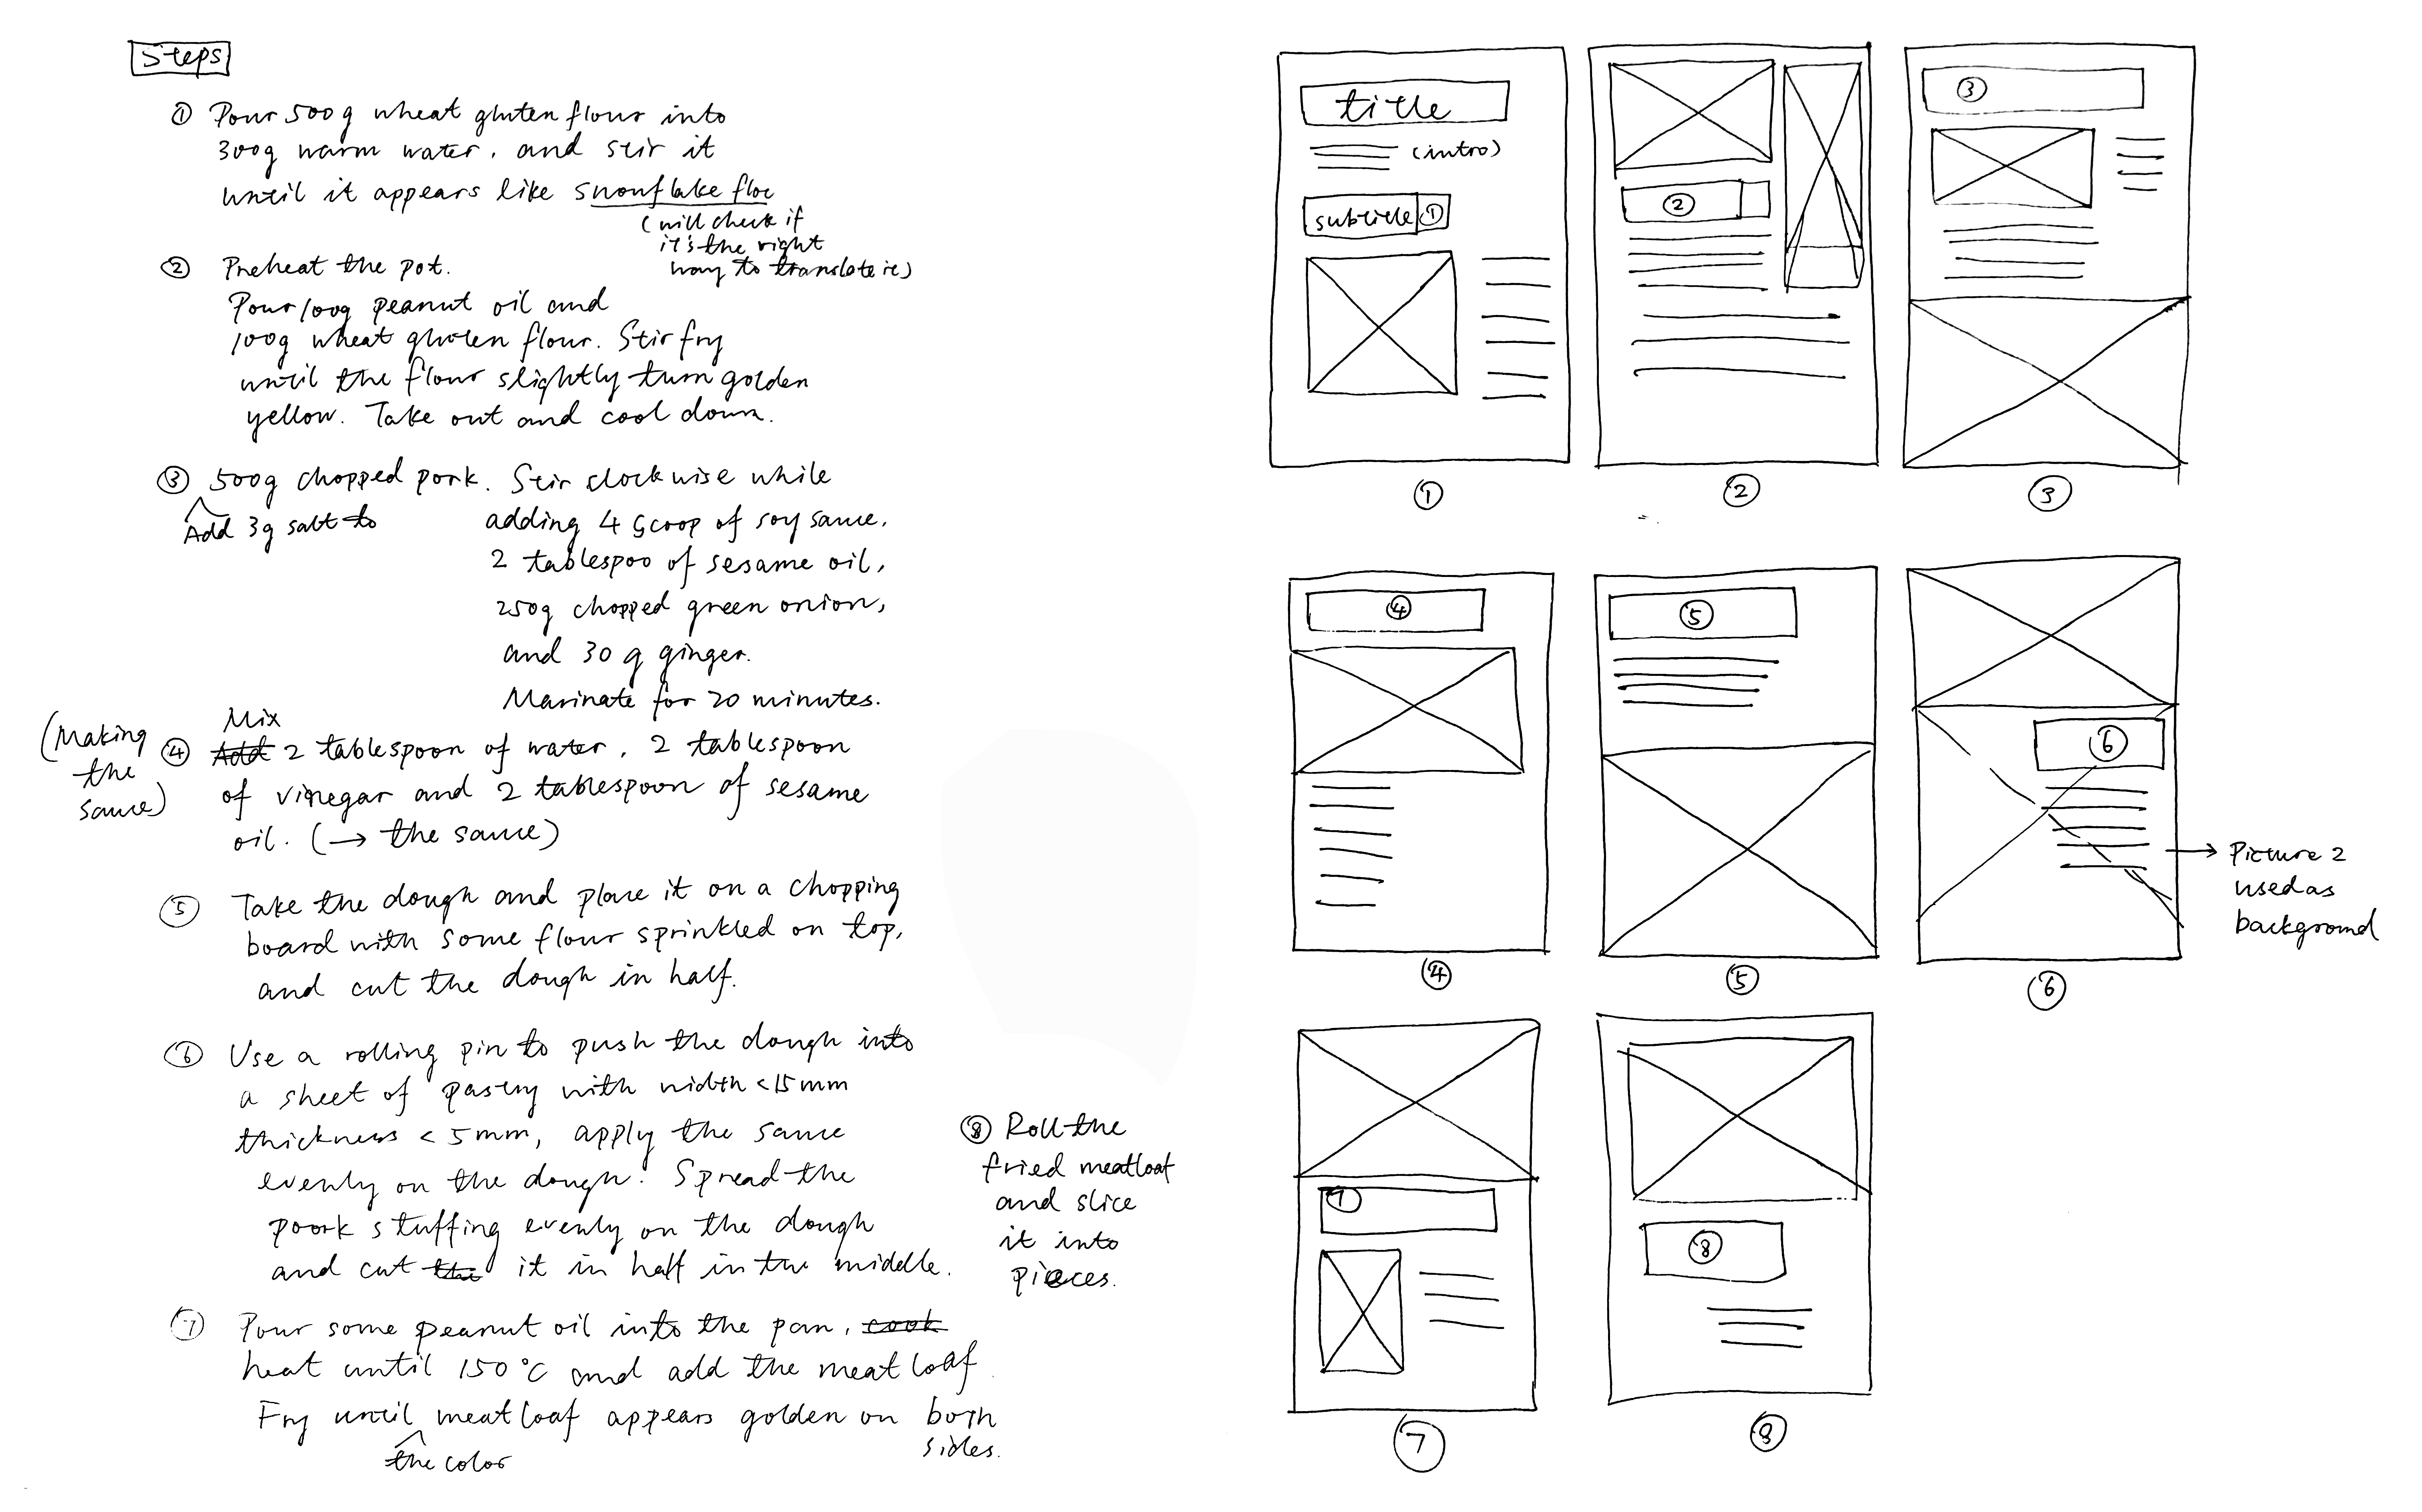 Steps
① Pour 500g wheat gluten flour into
300g warm water, and stir it
until it appears like snowflake floc
(will check if
it's the right
way to translate it)
② Preheat the pot.
Pour 100g peanut oil and
100g wheat gluten flour. Stir fry
until the flour slightly turn golden
yellow. Take out and cool down.
③ 500g chopped pork. Stir clockwise while
Add 3g salt to
adding 4 scoop of soy sauce,
2 tablespoo of sesame oil,
250g chopped green onion,
and 30 g ginger.
Marinate for 20 minutes.
(Making
the
sauce)
Mix
④ Add 2 tablespoon of water, 2 tablespoon
of vinegar and 2 tablespoon of sesame
oil. (→ the sauce)
⑤ Take the dough and place it on a chopping
board with some flour sprinkled on top,
and cut the dough in half.
⑥ Use a rolling pin to push the dough into
a sheet of pastry with width <15mm
thickness < 5mm, apply the sauce
evenly on the dough. Spread the
poork stuffing evenly on the dough
and cut the it in half in the middle.
⑦ Pour some peanut oil into the pan, cook
heat until 150°C and add the meat loaf
Fry until meatloaf appears golden on both
the color
sides.
⑧ Roll the
fried meatloaf
and slice
it into
pieces.
title
(intro)
subtitle ①
①
②
②
③
③
④
④
⑤
⑤
⑥
→ Picture 2
used as
background
⑥
⑦
⑦
⑧
⑧